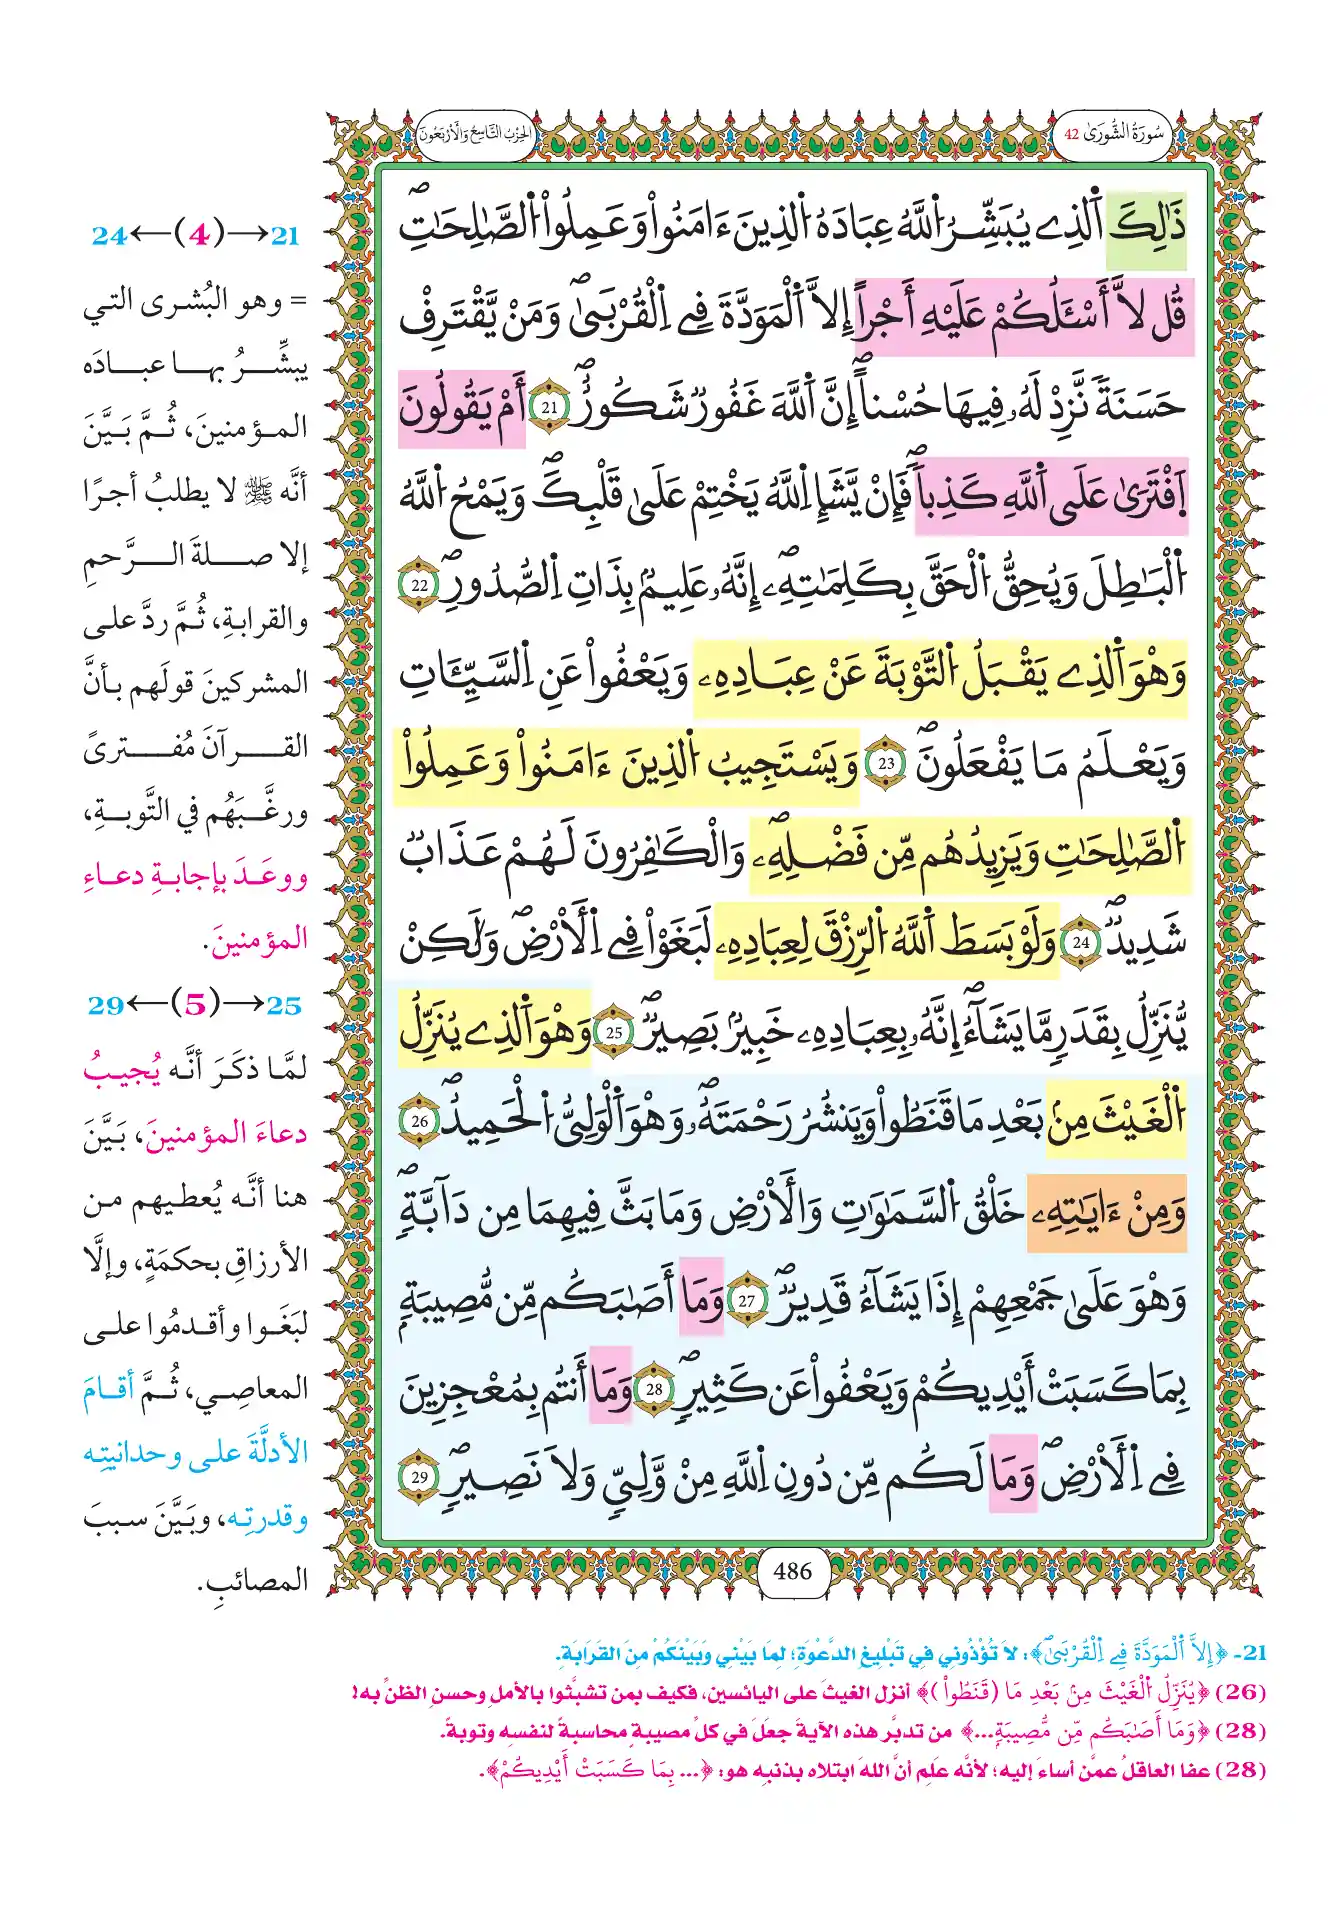 سُورَةُ الشُّورَىٰ 42
الحِزْبُ التَّاسِعُ وَالْأَرْبَعُونَ
ذَٰلِكَ اَ۬لذِے يُبَشِّرُ اُ۬للَّهُ عِبَادَهُ اُ۬لذِينَ ءَامَنُواْ وَعَمِلُواْ اُ۬لصَّٰلِحَٰتِۖ
قُل لَّآ أَسْـَٔلُكُمْ عَلَيْهِ أَجْراً إِلَّا اَ۬لْمَوَدَّةَ فِے اِ۬لْقُرْبَىٰۖ وَمَنْ يَّقْتَرِفْ
حَسَنَةٗ نَّزِدْ لَهُۥ فِيهَا حُسْناًۖ إِنَّ اَ۬للَّهَ غَفُورٞ شَكُورٌۖ 21 أَمْ يَقُولُونَ
اَ۪فْتَرَىٰ عَلَى اَ۬للَّهِ كَذِباٗۖ فَإِنْ يَّشَإِ اِ۬للَّهُ يَخْتِمْ عَلَىٰ قَلْبِكَۖ وَيَمْحُ اُ۬للَّهُ
اُ۬لْبَٰطِلَ وَيُحِقُّ اُ۬لْحَقَّ بِكَلِمَٰتِهِۦٓۖ إِنَّهُۥ عَلِيمُۢ بِذَاتِ اِ۬لصُّدُورِۖ 22
وَهْوَ اَ۬لذِے يَقْبَلُ اُ۬لتَّوْبَةَ عَنْ عِبَادِهِۦ وَيَعْفُواْ عَنِ اِ۬لسَّيِّـَٔاتِ
وَيَعْلَمُ مَا يَفْعَلُونَۖ 23 وَيَسْتَجِيبُ اُ۬لذِينَ ءَامَنُواْ وَعَمِلُواْ
اُ۬لصَّٰلِحَٰتِ وَيَزِيدُهُم مِّن فَضْلِهِۦۖ وَالْكَٰفِرُونَ لَهُمْ عَذَابٞ
شَدِيدٞۖ 24 وَلَوْ بَسَطَ اَ۬للَّهُ اُ۬لرِّزْقَ لِعِبَادِهِۦ لَبَغَوْاْ فِے اِ۬لَارْضِۖ وَلَٰكِنْ
يُّنَزِّلُ بِقَدَرٖ مَّا يَشَآءُۖ إِنَّهُۥ بِعِبَادِهِۦ خَبِيرُۢ بَصِيرٞۖ 25 وَهْوَ اَ۬لذِے يُنَزِّلُ
اُ۬لْغَيْثَ مِنۢ بَعْدِ مَا قَنَطُواْ وَيَنشُرُ رَحْمَتَهُۥۖ وَهْوَ اَ۬لْوَلِيُّ اُ۬لْحَمِيدُۖ 26
وَمِنْ ءَايَٰتِهِۦ خَلْقُ اُ۬لسَّمَٰوَٰتِ وَالْأَرْضِ وَمَا بَثَّ فِيهِمَا مِن دَآبَّةٖۖ
وَهْوَ عَلَىٰ جَمْعِهِمْ إِذَا يَشَآءُ قَدِيرٞۖ 27 وَمَا أَصَٰبَكُم مِّن مُّصِيبَةِۢ
بِمَا كَسَبَتْ أَيْدِيكُمْ وَيَعْفُواْ عَن كَثِيرٖۖ 28 وَمَا أَنتُم بِمُعْجِزِينَ
فِے اِ۬لَارْضِۖ وَمَا لَكُم مِّن دُونِ اِ۬للَّهِ مِنْ وَّلِيّٖ وَلَا نَصِيرٖۖ 29
486
21←(4)→24
= وهو البُشرى التي
يبشِّرُ بها عبادَه
المؤمنينَ، ثُمَّ بَيَّنَ
أنَّه ﷺ لا يطلبُ أجرًا
إلا صلةَ الرَّحمِ
والقرابةِ، ثُمَّ ردَّ على
المشركينَ قولَهم بأنَّ
القرآنَ مُفترىً
ورغَّبَهُم في التَّوبةِ،
ووعَدَ بإجابةِ دعاءِ
المؤمنينَ.
25←(5)→29
لمَّا ذكَرَ أنَّه يُجيبُ
دعاءَ المؤمنينَ، بَيَّنَ
هنا أنَّه يُعطيهم من
الأرزاقِ بحكمَةٍ، وإلَّا
لبَغَوا وأقدمُوا على
المعاصِي، ثُمَّ أقامَ
الأدلَّةَ على وحدانيتِه
وقدرتِه، وبَيَّنَ سببَ
المصائبِ.
21- ﴿إِلَّا اَ۬لْمَوَدَّةَ فِے اِ۬لْقُرْبَىٰۖ﴾: لاَ تُؤْذُوني في تَبْليغِ الدَّعْوَةِ؛ لِمَا بَيْنِي وَبَيْنَكُمْ مِنَ القَرَابَةِ.
(26) ﴿يُنَزِّلُ اُ۬لْغَيْثَ مِنۢ بَعْدِ مَا (قَنَطُواْ)﴾ أنزل الغيثَ على اليائسين، فكيف بمن تشبَّثوا بالأملِ وحسنِ الظنِّ به!
(28) ﴿وَمَا أَصَٰبَكُم مِّن مُّصِيبَةٍ...﴾ من تدبَّر هذه الآيةَ جعلَ في كلِّ مصيبةٍ محاسبةً لنفسِه وتوبةً.
(28) عفا العاقلُ عمَّن أساءَ إليه؛ لأنَّه علِم أنَّ اللهَ ابتلاه بذنبِه هو: ﴿... بِمَا كَسَبَتْ أَيْدِيكُمْ﴾.